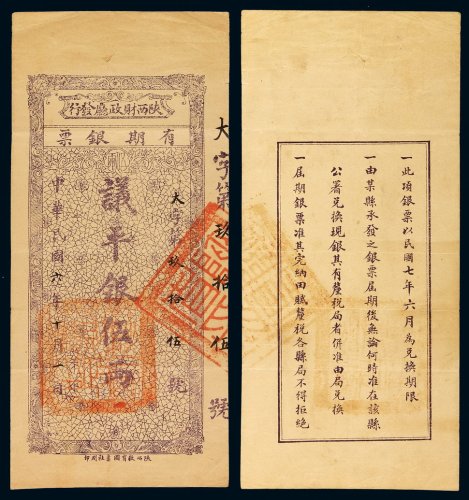 陝西財政廳發行
有期銀票
議平銀伍兩
大字第玖拾伍號
中華民國六年十月一日
大字第玖拾伍號
陝西教育圖書社印
一此項銀票以民國七年六月為兌換期限
一由某縣承發之銀票屆期後無論何時准在該縣
公署兌換現銀其有釐稅局者併准由局兌換
一屆期銀票准其完納田賦釐稅各縣局不得拒絕